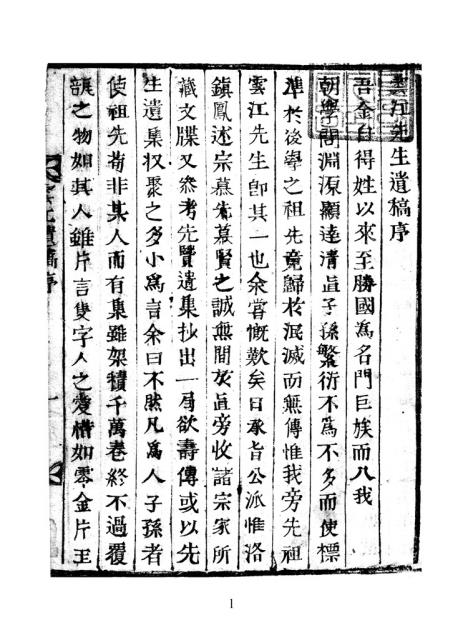 雲江先生遺稿序
吾金自得姓以來至勝國爲名門巨族而入我
朝學問淵源顯達淸直子孫繁衍不爲不多而使標
準於後學之祖先竟歸於泯滅而無傳惟我旁先祖
雲江先生卽其一也余嘗慨歎矣日承旨公派惟洛
鎭鳳述宗慕先慕賢之誠無間於直旁收諸宗家所
藏文牒又叅考先賢遺集抄出一局欲壽傳或以先
生遺集収聚之多小爲言余曰不然凡爲人子孫者
使祖先苟非其人而有集雖架積千萬卷終不過覆
瓿之物如其人雖片言隻字人之愛惜如零金片玉
遺稿序
1